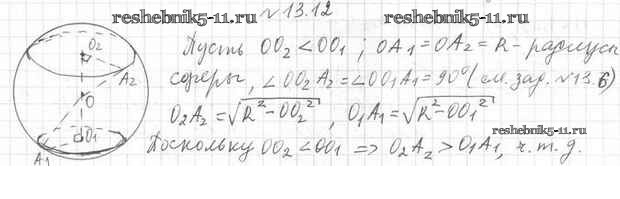 reshebnik5-11.ru
№13.12
reshebnik5-11.ru
Пусть OO₂ < OO₁ ; OA₁ = OA₂ = R - радиусы
сферы, ∠OO₂A₂ = ∠OO₁A₁ = 90° (см. зад. №13.6)
O₂A₂ = √R² - OO₂² , O₁A₁ = √R² - OO₁²
reshebnik5-11.ru
Поскольку OO₂ < OO₁ => O₂A₂ > O₁A₁, ч.т.д.
O₂
A₂
O
O₁
A₁